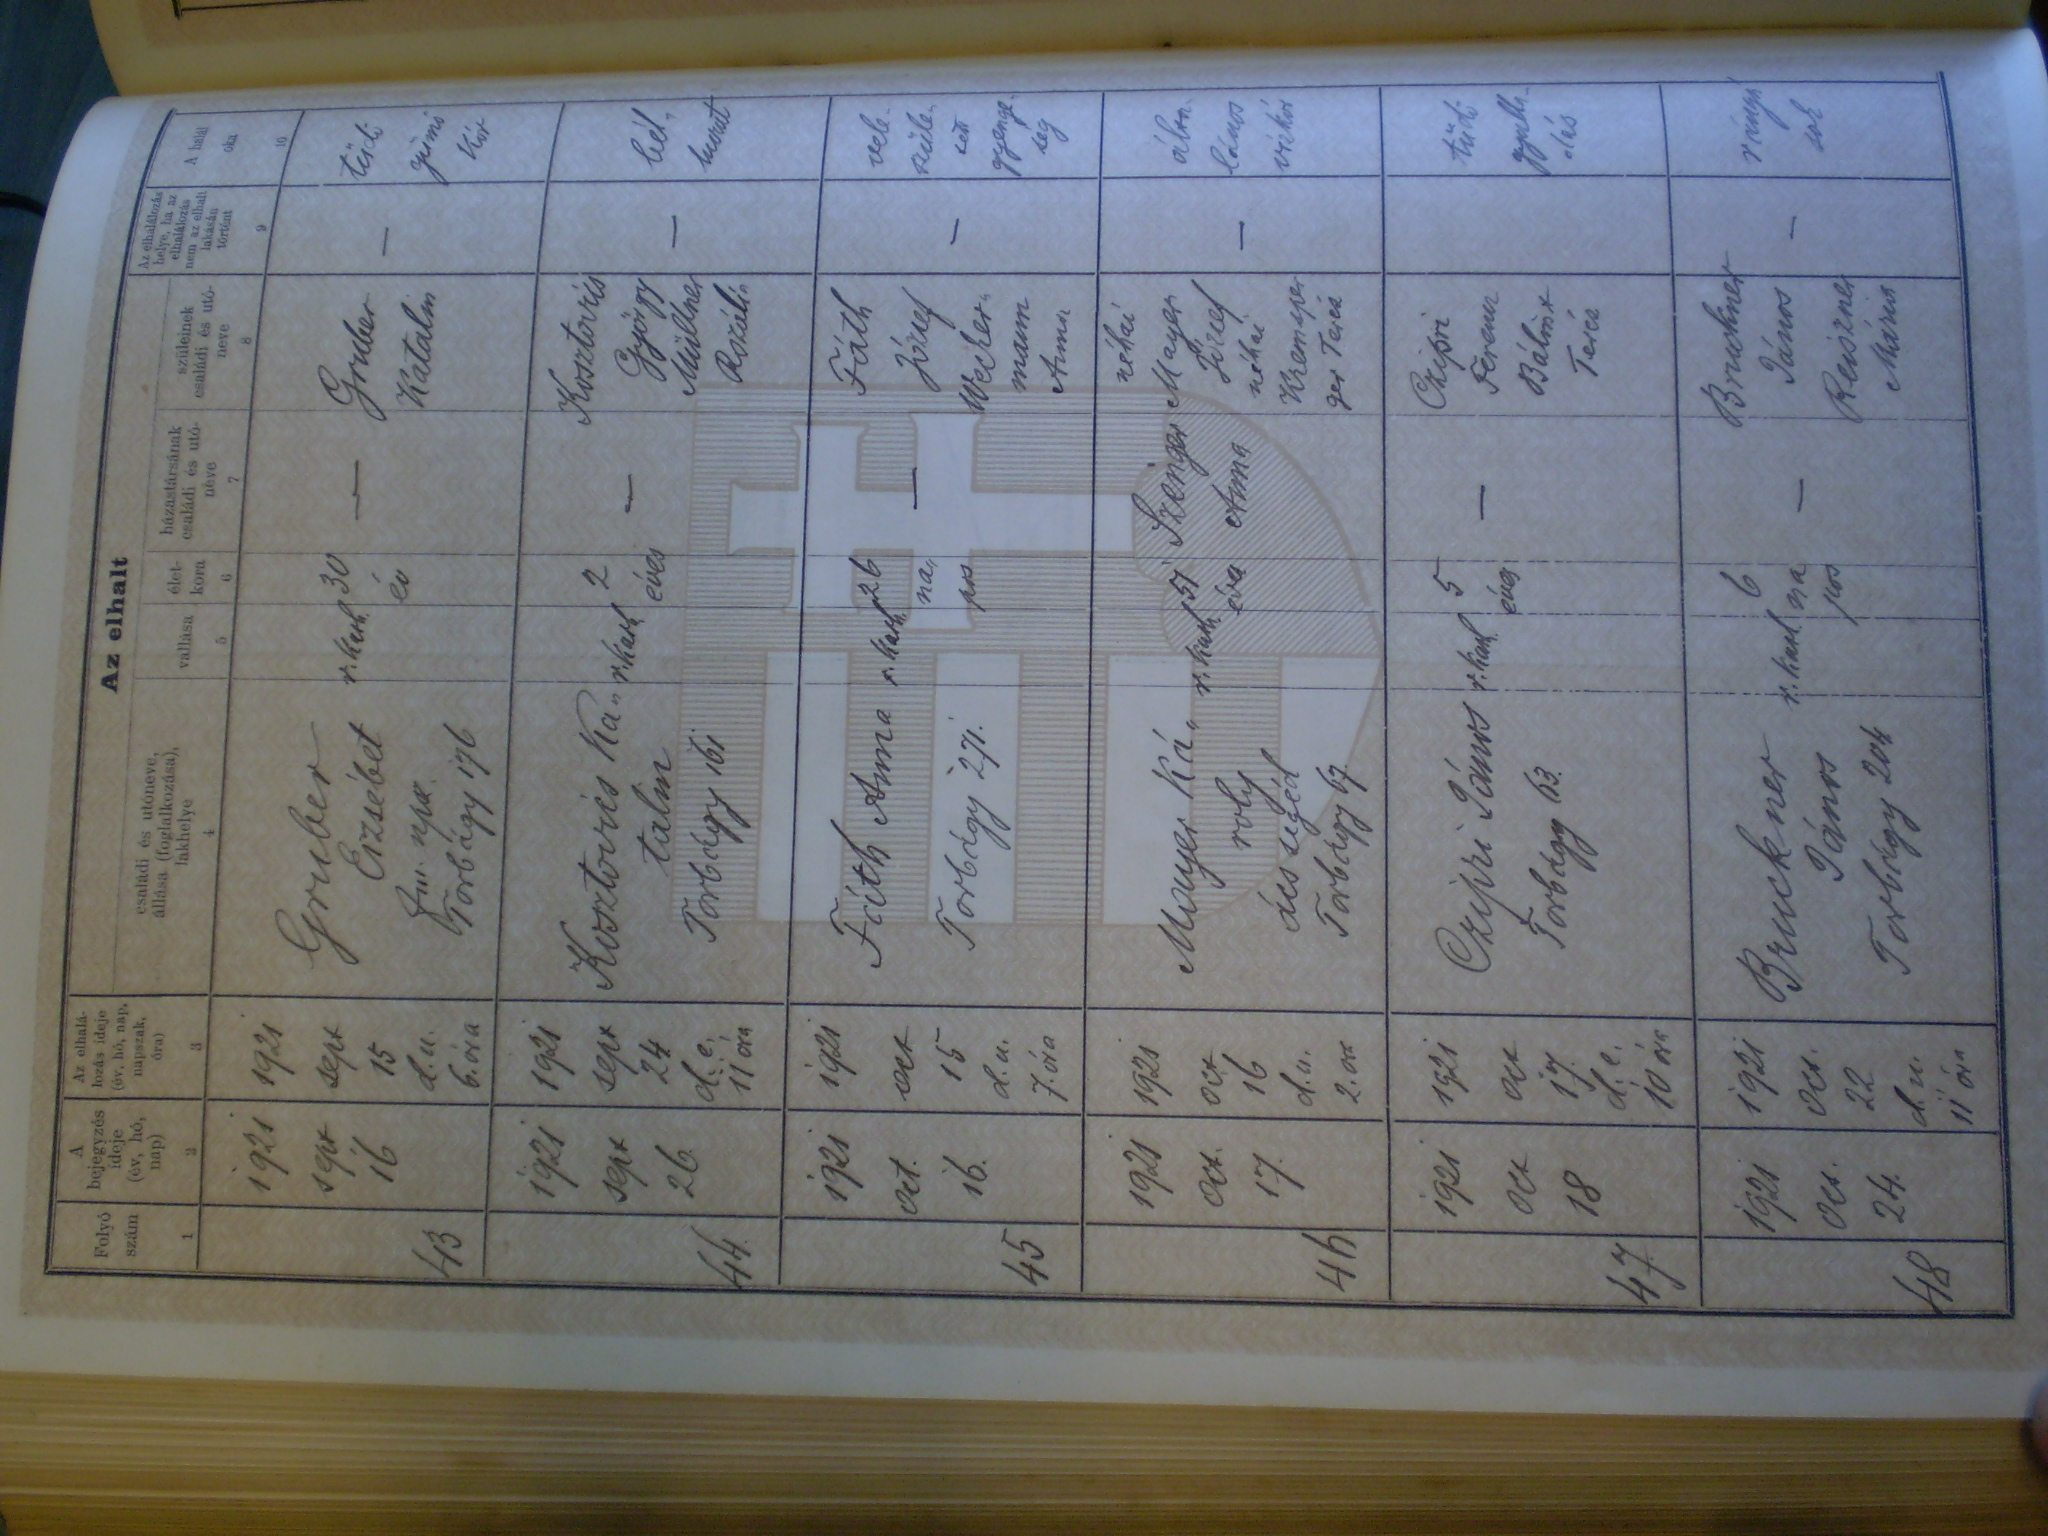 Az elhalt
Folyó
szám
A
bejegyzés
ideje
(év, hó,
nap)
Az elhalá-
lozás ideje
(év, hó, nap,
napszak,
óra)
családi és utóneve,
állása (foglalkozása),
lakhelye
vallása
élet-
kora
házastársának
családi és utó-
neve
szüleinek
családi és utó-
neve
Az elhalálozás
helye, ha az
elhalálozás
nem az elhalt
lakásán
történt
A halál
oka
1
2
3
4
5
6
7
8
9
10
43
1921
sept
16
1921
sept
15
d.u.
6 óra
Gruber
Erzsébet
Torbágy 176
r. kath
30
év
—
Gruber
Katalin
—
tüdő
gümő
kór
44
1921
sept
26.
1921
sept
24
d. e.
11 óra
Kosztovis Ka„
talin
Torbágy 161
r. kath
2
éves
—
Kosztovis
György
Müllner
Rozáli„
—
bél„
hurut
45
1921
oct.
16.
1921
oct
15
d.u.
7. óra
Fáth Anna
Torbágy 271.
r. kath
26
na„
pos
—
Fáth
József
Weicher„
mann
Anna
—
vele„
szüle„
tett
gyenge„
ség
46
1921
oct.
17.
1921
oct
16
d.u.
2. óra
Mayer Ká„
roly
ács segéd
Torbágy 67.
r. kath
51
éves
Szenger
Anna
néhai
Mayer
József
néhai
Kremsper
ger Teréz
—
álta„
lános
vízkór
47
1921
oct
18
1921
oct
17.
d. e.
10 óra
Czipri János
Torbágy 63.
r. kath
5
éves
—
Czipri
Ferenc
Bálint
Teréz
tüdő
gyulla„
dás
48
1921
oct.
24.
1921
oct.
22
d.u.
11 óra
Bruckner
János
Torbágy 204
r. kath
6
na
pos
—
Bruckner
János
Reiszner
Mária
—